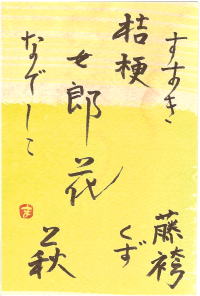 すすき
桔梗
女郎花
なでしこ
藤袴
くず
萩
ま